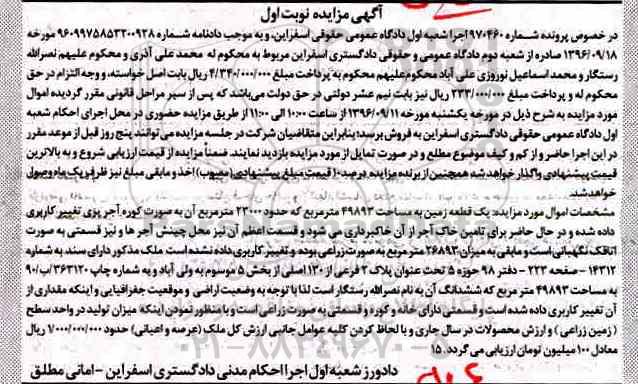 آگهی مزایده نوبت اول
در خصوص پرونده شماره ۹۷۰۴۶۰ اجرا شعبه اول دادگاه عمومی حقوقی اسفراین، و به موجب دادنامه شماره ۹۶۰۹۹۷۵۸۵۳۲۰۰۹۳۸ مورخه
۱۳۹۶/۰۹/۱۸ صادره از شعبه دوم دادگاه عمومی و حقوقی دادگستری اسفراین مربوط به محکوم له محمد علی آذری و محکوم علیهم نصرالله
رستگار و محمد اسماعیل نوروزی علی آباد محکوم علیهم محکوم به پرداخت مبلغ ۴/۳۴۰/۰۰۰/۰۰۰ ریال بابت اصل خواسته، و وجه التزام در حق
محکوم له و پرداخت مبلغ ۲۳۳/۰۰۰/۰۰۰ ریال نیز بابت نیم عشر دولتی در حق دولت می‌باشد که پس از سیر مراحل قانونی مقرر گردیده اموال
مورد مزایده به شرح ذیل در مورخه یکشنبه مورخه ۱۳۹۶/۰۹/۱۱ از ساعت ۱۰:۰۰ الی ۱۱:۰۰ از طریق مزایده حضوری در محل اجرای احکام شعبه
اول دادگاه عمومی حقوقی دادگستری اسفراین به فروش برسد؛ بنابراین متقاضیان شرکت در جلسه مزایده می‌توانند پنج روز قبل از موعد مقرر
در این اجرا حاضر و از کم و کیف موضوع مطلع و در صورت تمایل از مورد مزایده بازدید نمایند. ضمناً مزایده از قیمت ارزیابی شروع و به بالاترین
قیمت پیشنهادی واگذار خواهد شد همچنین از برنده مزایده درصد ۱۰ قیمت مبلغ پیشنهادی اخذ و مابقی مبلغ نیز ظرف یک ماه وصول
خواهد شد.
مشخصات اموال مورد مزایده: یک قطعه زمین به مساحت ۴۹۸۹۳ متر مربع که حدود ۲۳۰۰۰ متر مربع آن به صورت کوره آجرپزی تغییر کاربری
داده شده و در حال حاضر برای تامین خاک آجر از آن خاکبرداری می شود و قسمت اعظم آن نیز محل چینش آجرها و نیز قسمتی به صورت
اتاقک نگهبانی است و مابقی به میزان ۲۶۸۹۳ متر مربع به صورت زراعی بوده و تغییر کاربری داده نشده است ملک مذکور دارای سند به شماره
۱۴۳۱۲ - صفحه ۲۲۳ - دفتر ۹۸ حوزه ۵ تحت عنوان پلاک ۲ فرعی از ۱۳۰ اصلی از بخش ۵ موسوم به ولی آباد و به شماره چاپ ۳۶۳۱۲۰ ب/۹۰
به مساحت ۴۹۸۹۳ متر مربع که ششدانگ آن به نام نصرالله رستگار است لذا با توجه به وضعیت اراضی و موقعیت جغرافیایی و اینکه مقداری از
آن تغییر کاربری داده شده است و قسمتی دارای خانه و کوره و قسمتی به صورت زراعی است و با منظور نمودن اینکه میزان تولید در واحد سطح
(زمین زراعی) و ارزش محصولات در سال جاری و با لحاظ کردن کلیه عوامل جانبی ارزش کل ملک (عرصه و اعیانی) حدود ۱/۰۰۰/۰۰۰/۰۰۰ ریال
معادل ۱۰۰ میلیون تومان ارزیابی می گردد. ۱۵
دادورز شعبه اول اجرا احکام مدنی دادگستری اسفراین - امانی مطلق
۰۲۱-۸۸۳۴۹۶۷۰-۵